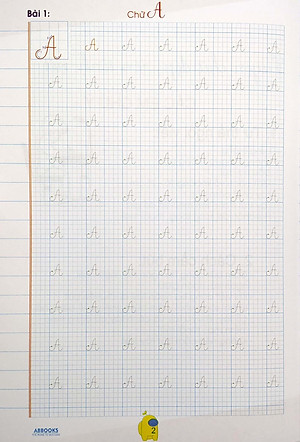 Bài 1: Chữ A
A A A A A A A
A A A A A A A
A A A A A A A
A A A A A A A
A A A A A A A
A A A A A A A
A A A A A A A
A A A A A A A
A A A A A A A
A A A A A A A
ABBOOKS
2